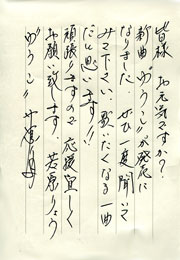 皆様 お元気ですか?
新曲“ゆうこ”が発売に
なりました。ぜひ一度聞いて
みて下さい。歌いたくなる一曲
だと思います!!
頑張りますので 応援宜しく
お願い致します。 若原りょう
“ゆうこ”